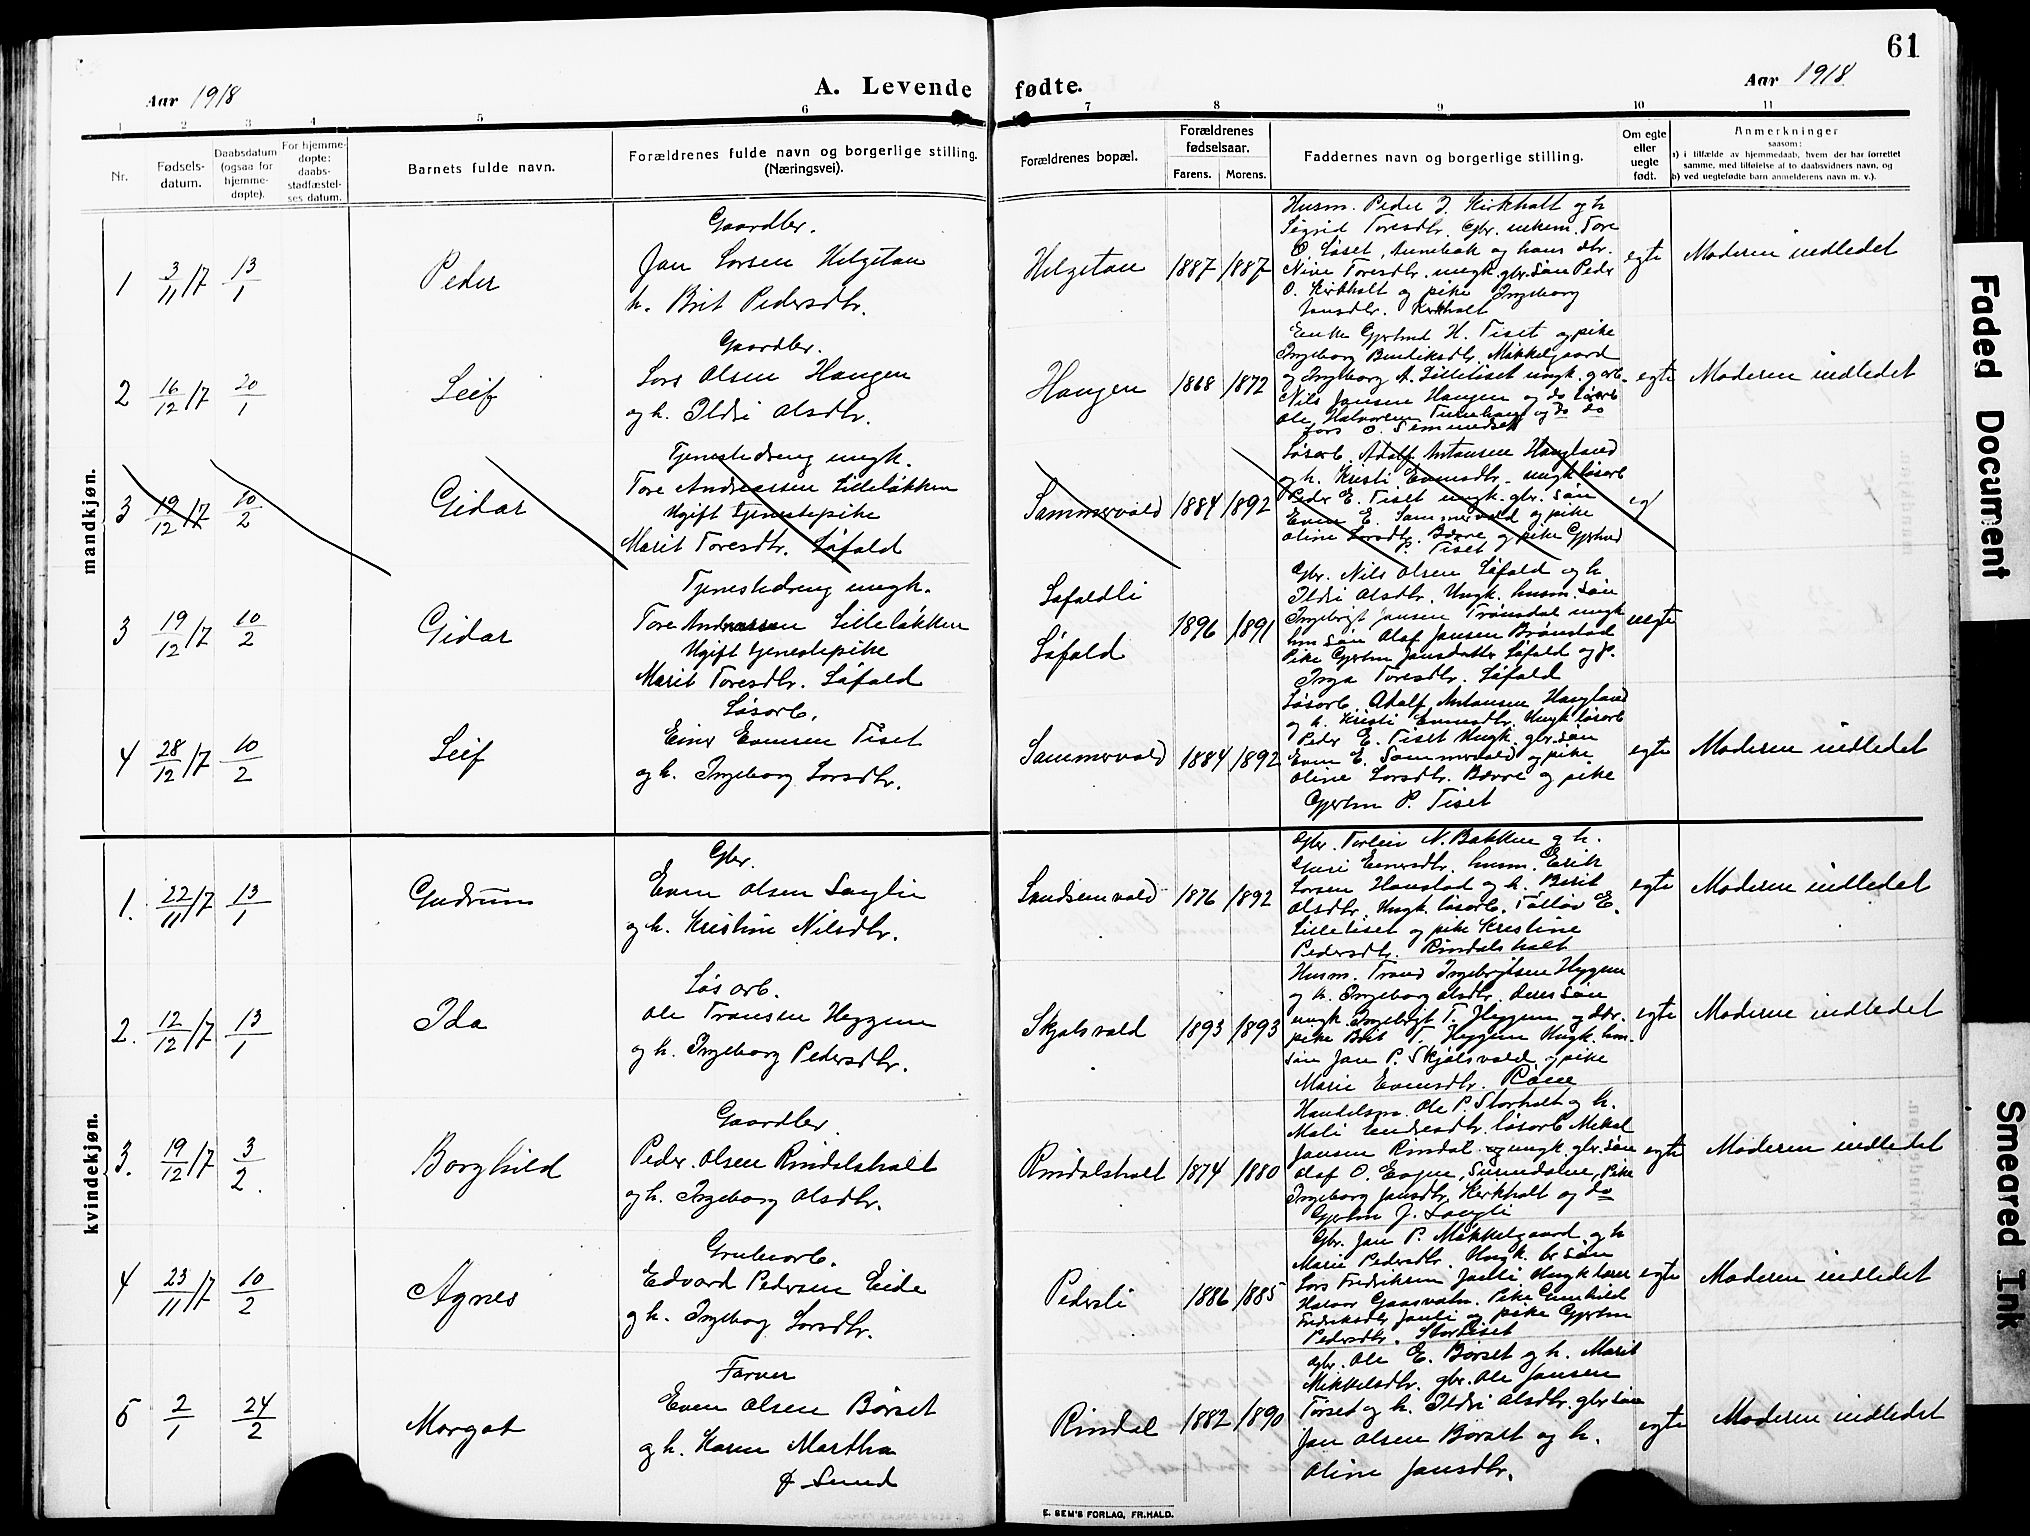 61
Aar 1918
A. Levende fødte.
Aar 1918
1 2 3 4 5 6 7 8 9 10 11
Nr.
Fødsels-
datum.
Daabsdatum
(ogsaa for
hjemme-
døpte).
For hjemme-
døpte:
daabs-
stadfæstel-
ses datum.
Barnets fulde navn.
Forældrenes fulde navn og borgerlige stilling.
(Næringsvei).
Forældrenes bopæl.
Forældrenes
fødselsaar.
Farens. Morens.
Faddernes navn og borgerlige stilling.
Om egte
eller
uegte
født.
Anmerkninger
saasom:
a) i tilfælde av hjemmedaab, hvem der har forrettet
samme, med tilføielse af to daabsvidners navn, og
b) ved uegtefødte barn anmelderens navn m. v.).
mandkjøn.
1
3/11 17
13/1
Peder
Gaardbr.
Jan Larsen Helgetan
h. Brit Pedersdtr.
Helgetan
1887
1887
Husm. Peder J. Kirkholt og h
Sigrid Toresdtr. Gbr. enkem. Tore
O. Løset, Annebak og hans dtr.
Nine Toresdtr. ungk. gbr. søn Peder
O. Kirkholt og pike Ingeborg
Jansdtr. Kirkholt
egte
Moderen indledet
2
16/12 17
20/1
Leif
Gaardbr.
Lars Olsen Haugen
og h. Ildri Olsdtr.
Haugen
1868
1872
Enke Gjertrud H. Tiset og pike
Ingeborg Bendiksdtr. Mikkelgaard
og Ingeborg A. Lilletiset ungk. garb.
Nils Jansen Haugen og do løsarb
Ole Halvorsen Tunehaug og do do
Lars O.
egte
Moderen indledet
3
19/12 17
10/2
Gidar
Tjenestedreng ungk.
Tore Andreassen Lilleløkken
Ugift tjenestepike
Marit Toresdtr. Løfald
Sammervold
1884
1892
Løsarb. Adolf Antonsen Haugland
og h. Kristi Evensdtr. ungk. løsarb
Peder E. Tiset ungk. gbr. søn
Even E. Sammervold og pike
Oline Larsdtr. Bævre og pike Gjertrud
P. Tiset
eg
3
19/12 17
10/2
Gidar
Tjenestedreng ungk.
Tore Andreassen Lilleløkken
Ugift tjenestepike
Marit Toresdtr. Løfald
Løfaldli
Løfald
1896
1891
Gbr. Nils Olsen Løfald og h
Ildri Olsdtr. Ungk. husm. søn
Ingebrigt Jansen Trønsdal ungk
hm søn Olaf Jansen Brønstad
Pike Gjertru Jansdatter Løfald og p.
Inga Toresdtr. Løfald
uegte
4
28/12 17
10/2
Leif
Løsarb.
Einar Evensen Tiset
og h. Ingeborg Larsdtr.
Sammervold
1884
1892
Løsarb. Adolf Antonsen Haugland
og h. Kristi Evensdtr. Ungk løsarb
Peder E. Tiset Ungk. gbr. søn
Even E. Sammervold og pike
Oline Larsdtr. Bævre og pike
Gjertru P. Tiset
egte
Moderen indledet
kvindekjøn.
1.
22/11 17
13/1
Gudrun
Gbr.
Even Olsen Langli
og h. Kristine Nilsdtr.
Landsemvold
1876
1892
Gbr. Torleiv N. Bakken og h.
Guri Einersdtr. husm. Erik
Larsen Haustad og h. Berit
Olsdtr. Ungk. løsarb. Tollov E.
Lilletiset og pike Kristine
Pedersdtr. Rindalsholt
egte
Moderen indledet
2.
12/12 17
13/1
Ida
Løsarb.
Ole Tronsen Heggem
og h. Ingeborg Pedersdtr.
Skjølsvold
1893
1893
Husm. Trond Ingebrigtsen Heggem
og h. Ingeborg Olsdtr. deres søn
ungk. Ingebrigt T. Heggem og dtr.
pike Brit T. Heggem Ungk. hm-
søn Jan P. Skjølsvold og pike
Marie Evensdtr. Røen
egte
Moderen indledet
3.
19/12 17
3/2.
Borghild
Gaardbr.
Peder Olsen Rindalsholt
og h. Ingeborg Olsdtr.
Rindalsholt
1874
1880
Handelsm. Ole P. Storholt og h.
Mali Endresdtr. løsarb Mikal
Jansen Rindal og ungk. gbr. søn
Olaf O. Evjen, Surendalen, Pike
Ingeborg Jansdtr. Kirkholt og do
Gjertru J. Langli
egte
Moderen indledet
4
23/11 17
10/2
Agnes
Grubearb.
Edvard Pedersen Eide
og h. Ingeborg Larsdtr.
Pedersli
1886
1885
Gbr. Jan P. Mikkelgaard og h
Marie Pedersdtr. Ungk. br søn
Lars Fredriksen Janli. Ungk lærer
Halvor Gaasvatn. Pike Gunhild
Fredriksdtr Janli og pike Gjertru
Pedersdtr. Stortiset
egte
Moderen indledet
5
2/1
24/2
Margot
Farver
Even Olsen Børset
og h. Karen Martha
f Sund
Rindal
1882
1890
Gbr. Ole E. Børset og h. Marit
Mikkelsdtr. gbr. Ole Jansen
Tørset og h. Ildri Olsdtr. gbr. søn
Jan Olsen Børset og h.
Oline Jansdtr.
egte
Moderen indledet
E. SEM'S FORLAG, FR.HALD.
Faded Document
Smeared Ink